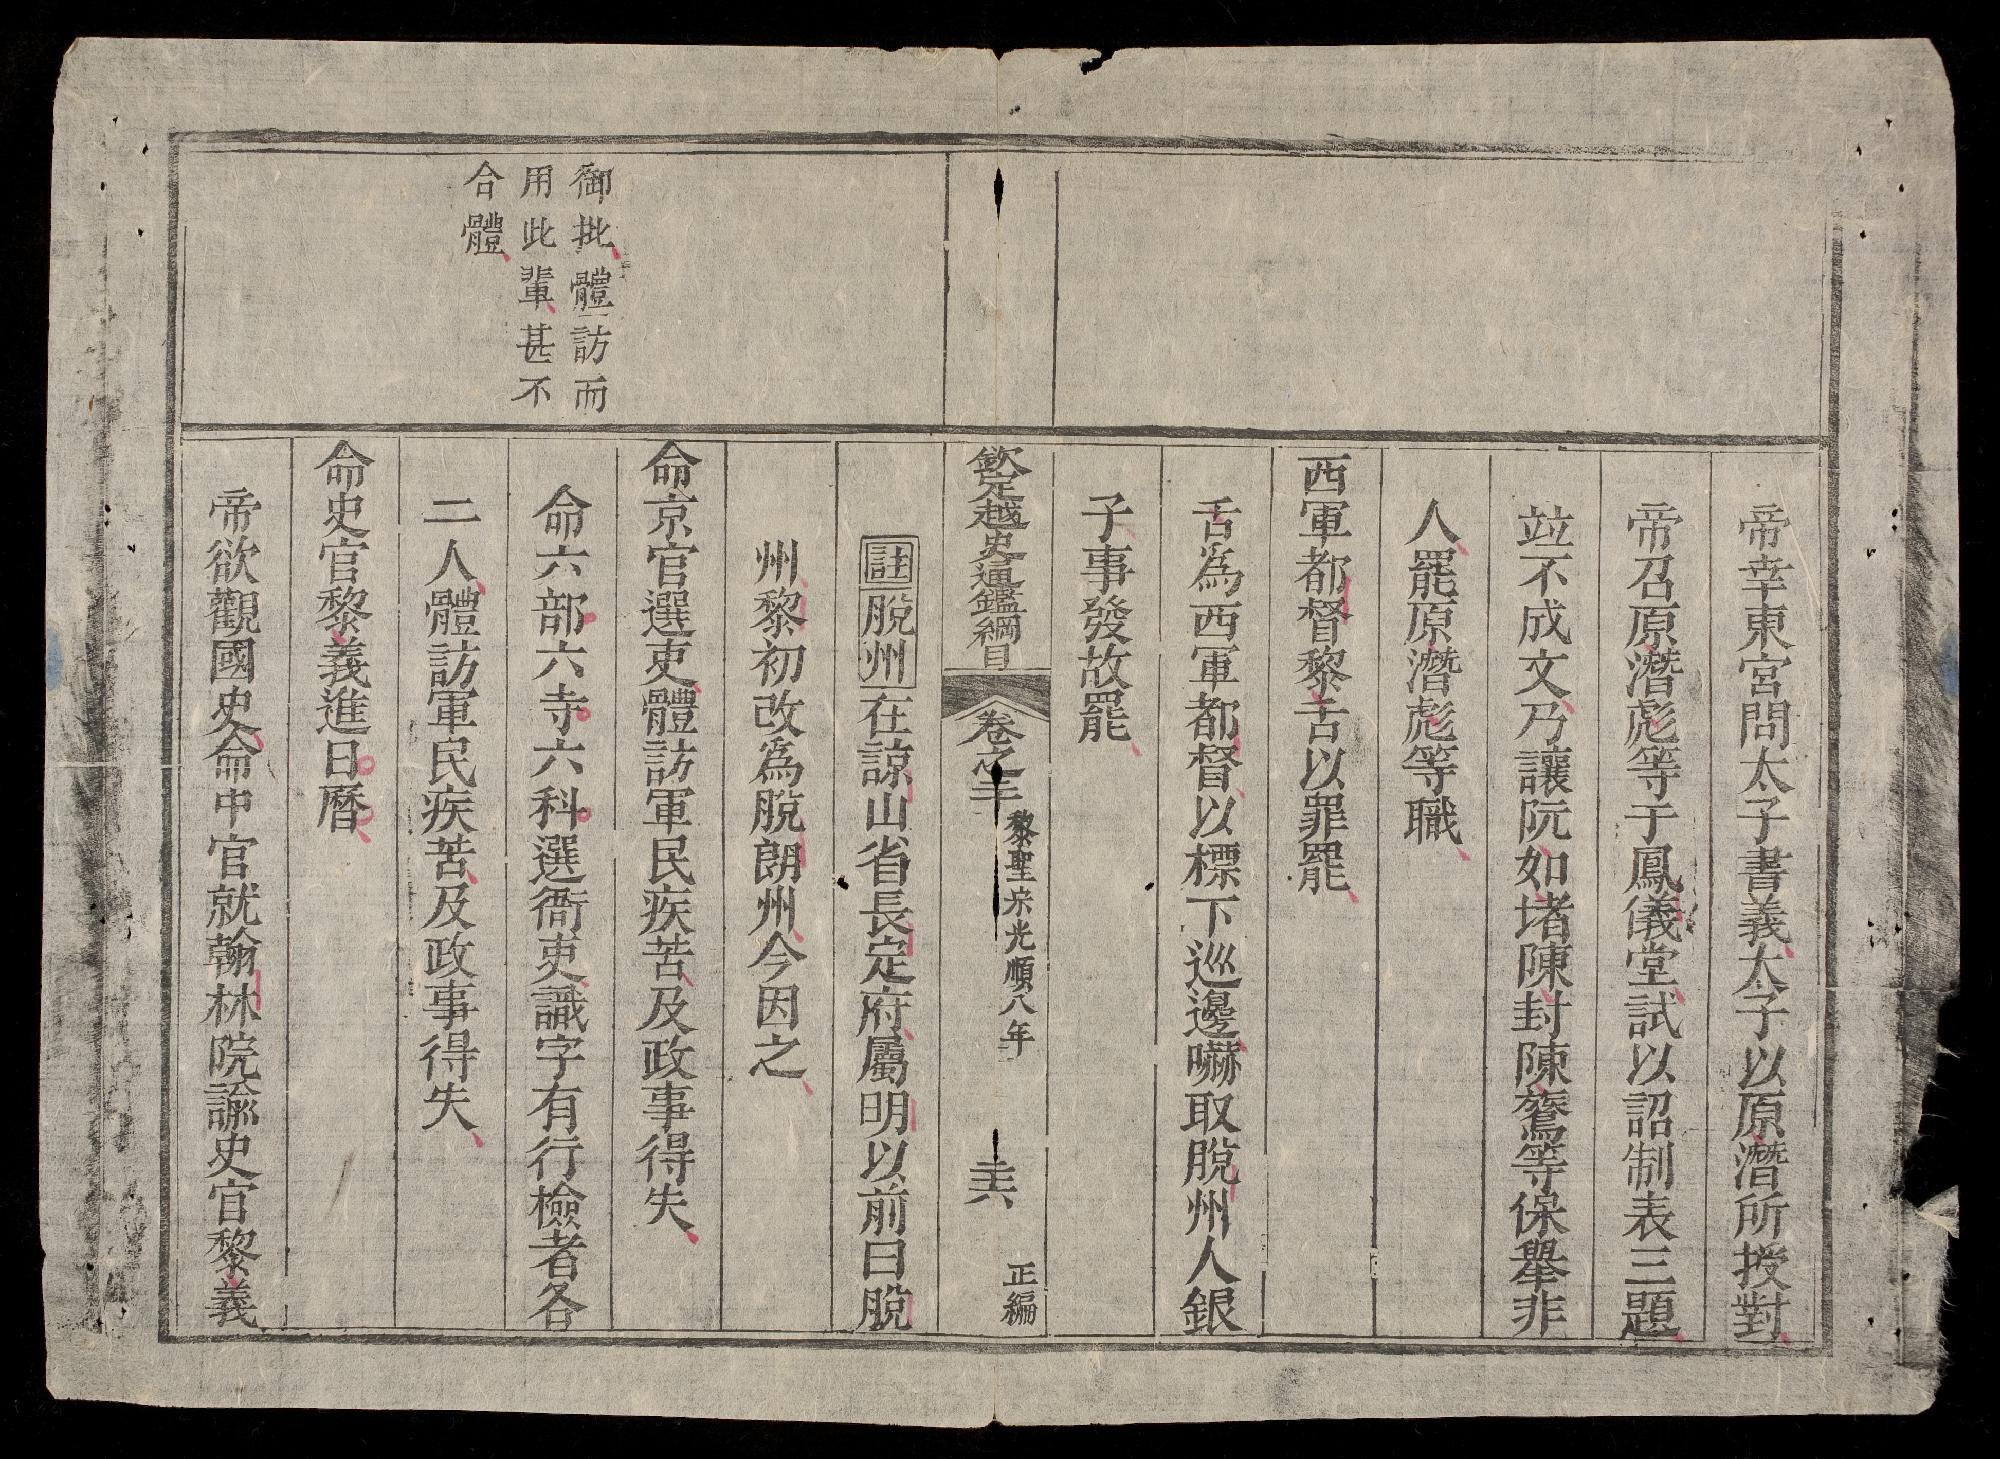 帝幸東宮問太子書義太子以原潛所授對
帝召原潛彪等于鳳儀堂試以詔制表三題
竝不成文乃讓阮如堵陳封陳等保舉非
人罷原潛彪等職
西軍都督黎舌以罪罷
舌爲西軍都督以標下巡邊嚇取脫州人銀
子事發故罷
欽定越史通鑑綱目
卷之二十
黎聖宗光順八年
三十六
正編
註脫州在諒山省長定府屬明以前曰脫
州黎初改爲脫朗州今因之
命京官選吏體訪軍民疾苦及政事得失
御批體訪而
用此輩甚不
合體
命六部六寺六科選衙吏識字有行檢者各
二人體訪軍民疾苦及政事得失
命史官黎義進日曆
帝欲觀國史命中官就翰林院諭史官黎義